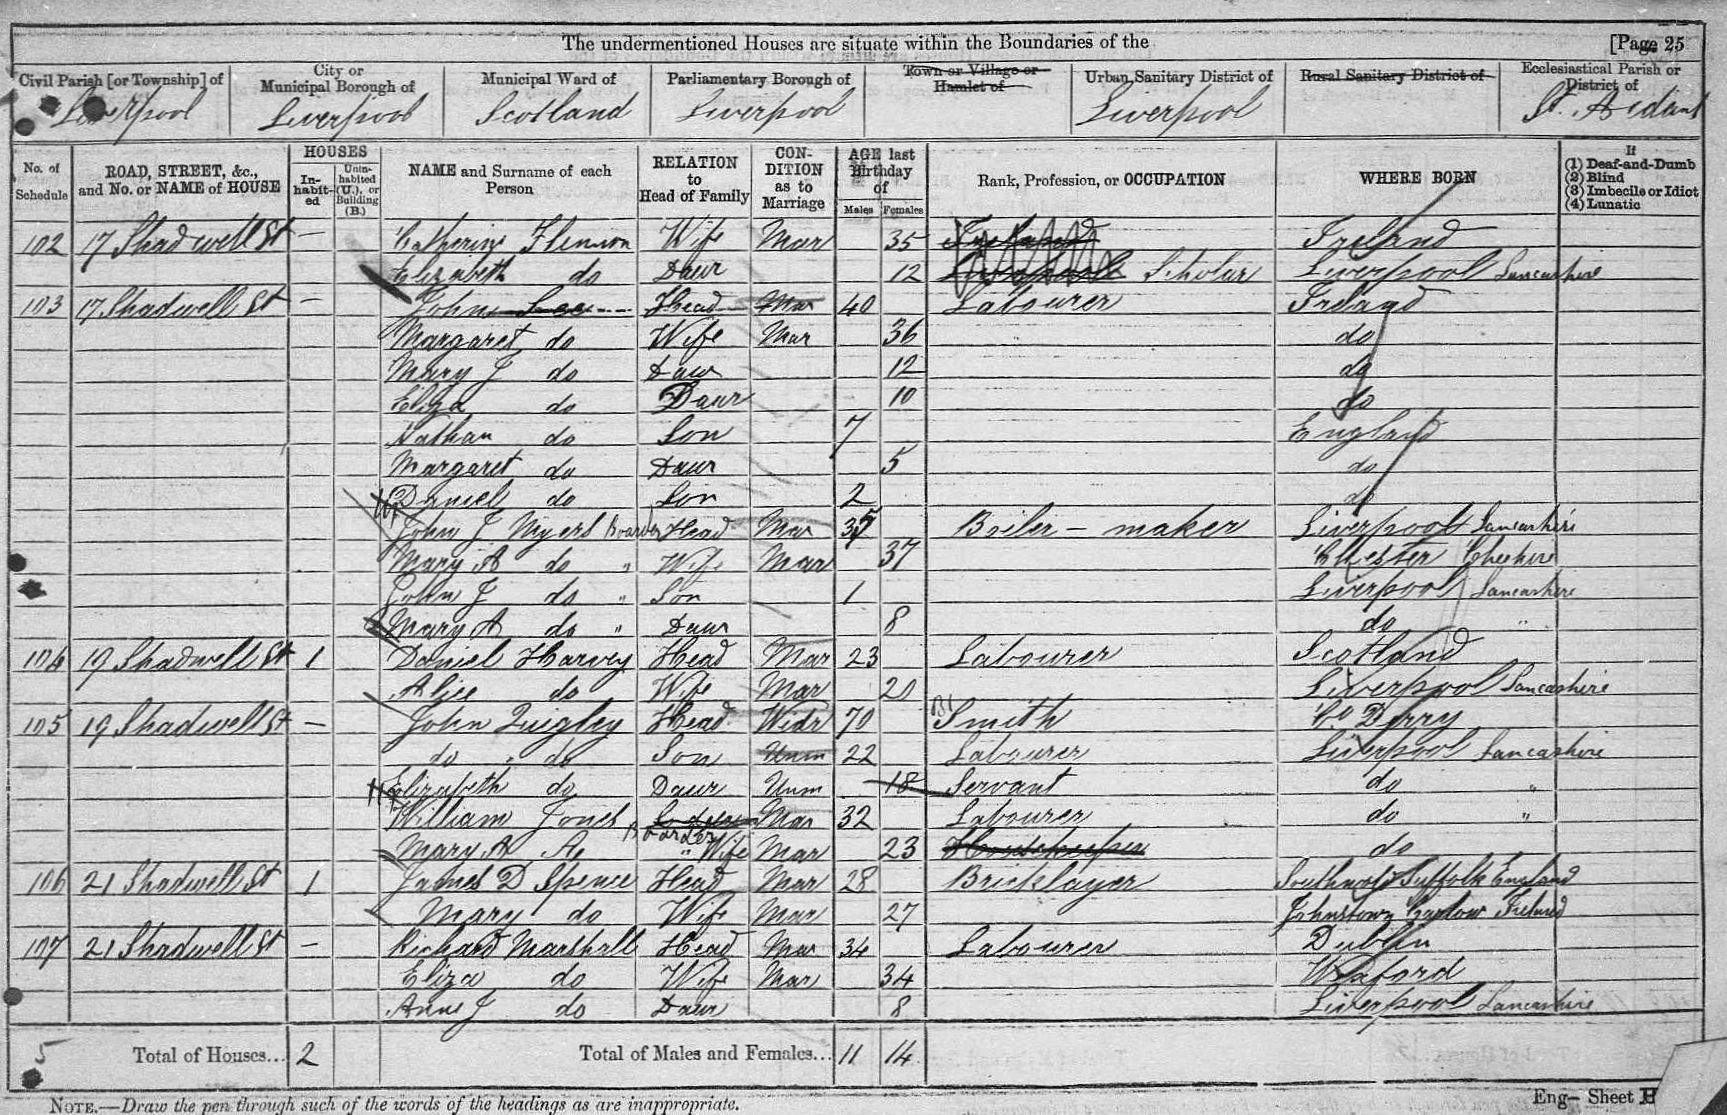 The undermentioned Houses are situate within the Boundaries of the [Page 25
Civil Parish [or Township] of City or Municipal Borough of Municipal Ward of Parliamentary Borough of Town or Village or Hamlet of Urban Sanitary District of Rural Sanitary District of Ecclesiastical Parish or District of
Liverpool Liverpool Scotland Liverpool Liverpool St. Aidans
No. of Schedule ROAD, STREET, &c., and No. or NAME of HOUSE HOUSES In-habit-ed Unin-habited (U.), or Building (B.) NAME and Surname of each Person RELATION to Head of Family CON-DITION as to Marriage AGE last Birthday of Males Females Rank, Profession, or OCCUPATION WHERE BORN If (1) Deaf-and-Dumb (2) Blind (3) Imbecile or Idiot (4) Lunatic
102 17 Shadwell St — Catherine Flennon Wife Mar 35 Ireland Ireland
Elizabeth do Daur 12 Liverpool Scholar Liverpool Lancashire
103 17 Shadwell St — John Lee Head Mar 40 Labourer Ireland
Margaret do Wife Mar 36 do
Mary J do Daur 12 do
Eliza do Daur 10 do
Nathan do Son 7 England
Margaret do Daur 5 do
Daniel do Son 2 do
John J Myers Boarder Head Mar 35 Boiler - maker Liverpool Lancashire
Mary A do " Wife Mar 37 Chester Cheshire
John J do " Son 1 Liverpool Lancashire
Mary A do " Daur 8 do "
104 19 Shadwell St 1 Daniel Harvey Head Mar 23 Labourer Scotland
Alice do Wife Mar 20 Liverpool Lancashire
105 19 Shadwell St — John Quigley Head Widr 70 Bl Smith Co Derry
do do Son Unm 22 Labourer Liverpool Lancashire
Elizabeth do Daur Unm 18 Servant do "
William Jones Boarder Mar 32 Labourer do "
Mary A do " Wife Mar 23 Housekeeper do
106 21 Shadwell St 1 James D Spence Head Mar 28 Bricklayer Southwold Suffolk England
Mary do Wife Mar 27 Johnstown Carlow Ireland
107 21 Shadwell St — Richard Marshall Head Mar 34 Labourer Dublin
Eliza do Wife Mar 34 Wexford
Anne J do Daur 8 Liverpool Lancashire
5 Total of Houses... 2 Total of Males and Females... 11 14
NOTE.—Draw the pen through such of the words of the headings as are inappropriate. Eng- Sheet H